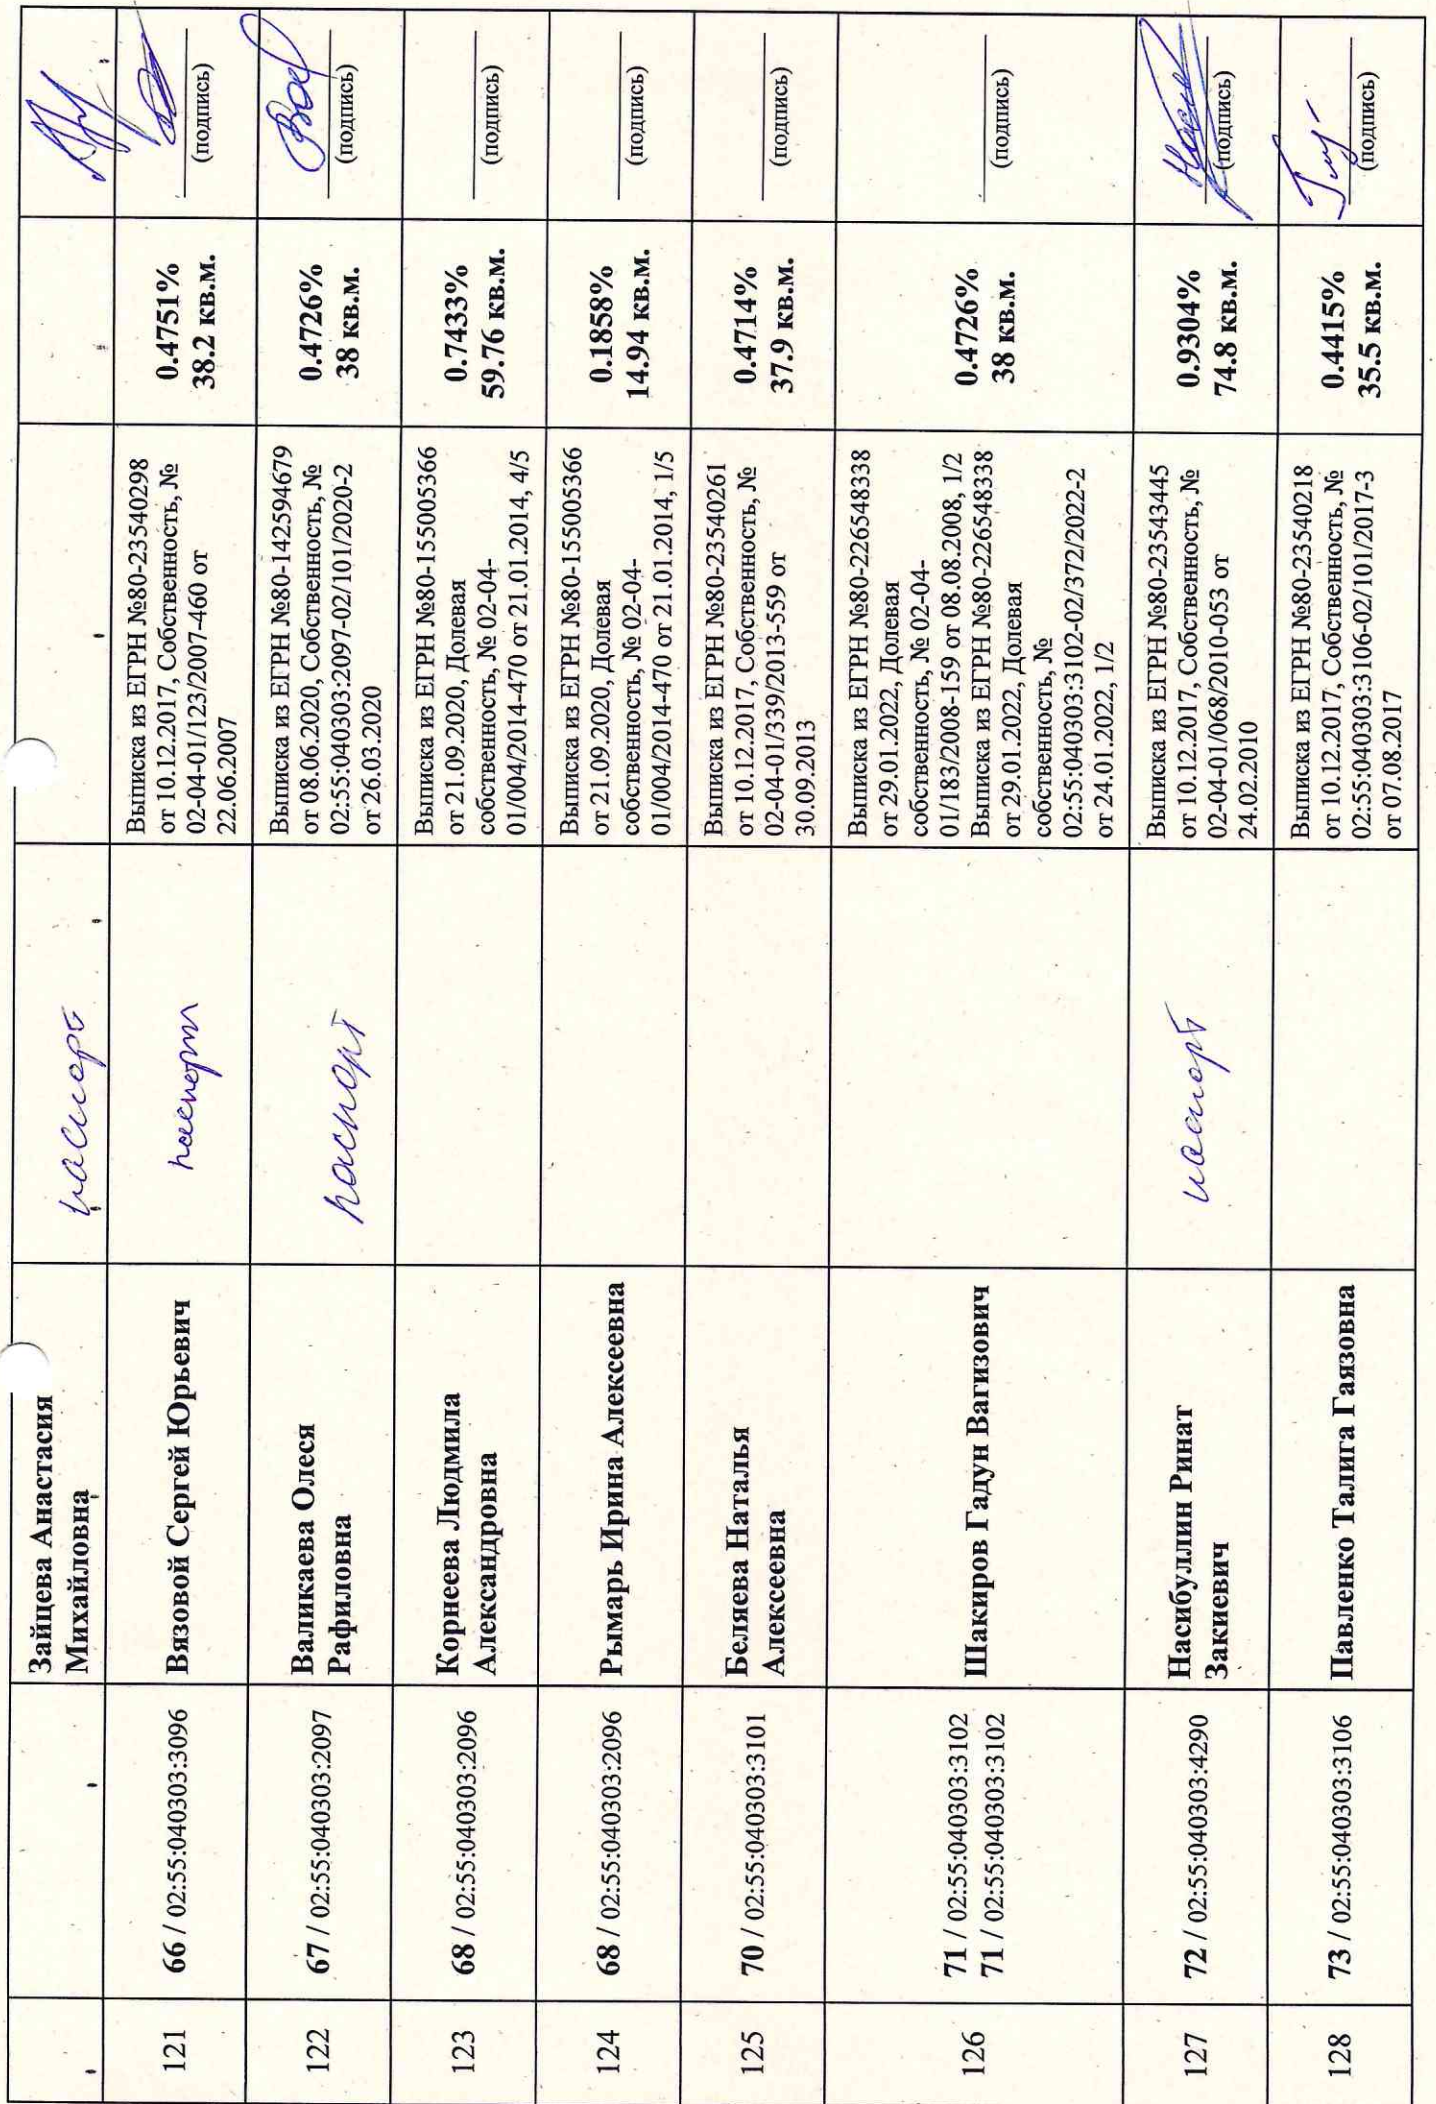 Зайцева Анастасия
Михайловна
паспорт
121
66 / 02:55:040303:3096
Вязовой Сергей Юрьевич
паспорт
Выписка из ЕГРН №80-23540298
от 10.12.2017, Собственность, №
02-04-01/123/2007-460 от
22.06.2007
0.4751%
38.2 кв.м.
(подпись)
122
67 / 02:55:040303:2097
Валикаева Олеся
Рафиловна
паспорт
Выписка из ЕГРН №80-142594679
от 08.06.2020, Собственность, №
02:55:040303:2097-02/101/2020-2
от 26.03.2020
0.4726%
38 кв.м.
(подпись)
123
68 / 02:55:040303:2096
Корнеева Людмила
Александровна
Выписка из ЕГРН №80-155005366
от 21.09.2020, Долевая
собственность, № 02-04-
01/004/2014-470 от 21.01.2014, 4/5
0.7433%
59.76 кв.м.
(подпись)
124
68 / 02:55:040303:2096
Рымарь Ирина Алексеевна
Выписка из ЕГРН №80-155005366
от 21.09.2020, Долевая
собственность, № 02-04-
01/004/2014-470 от 21.01.2014, 1/5
0.1858%
14.94 кв.м.
(подпись)
125
70 / 02:55:040303:3101
Беляева Наталья
Алексеевна
Выписка из ЕГРН №80-23540261
от 10.12.2017, Собственность, №
02-04-01/339/2013-559 от
30.09.2013
0.4714%
37.9 кв.м.
(подпись)
126
71 / 02:55:040303:3102
71 / 02:55:040303:3102
Шакиров Гадун Вагизович
Выписка из ЕГРН №80-226548338
от 29.01.2022, Долевая
собственность, № 02-04-
01/183/2008-159 от 08.08.2008, 1/2
Выписка из ЕГРН №80-226548338
от 29.01.2022, Долевая
собственность, №
02:55:040303:3102-02/372/2022-2
от 24.01.2022, 1/2
0.4726%
38 кв.м.
(подпись)
127
72 / 02:55:040303:4290
Насибуллин Ринат
Закиевич
паспорт
Выписка из ЕГРН №80-23543445
от 10.12.2017, Собственность, №
02-04-01/068/2010-053 от
24.02.2010
0.9304%
74.8 кв.м.
(подпись)
128
73 / 02:55:040303:3106
Павленко Талига Гаязовна
Выписка из ЕГРН №80-23540218
от 10.12.2017, Собственность, №
02:55:040303:3106-02/101/2017-3
от 07.08.2017
0.4415%
35.5 кв.м.
(подпись)